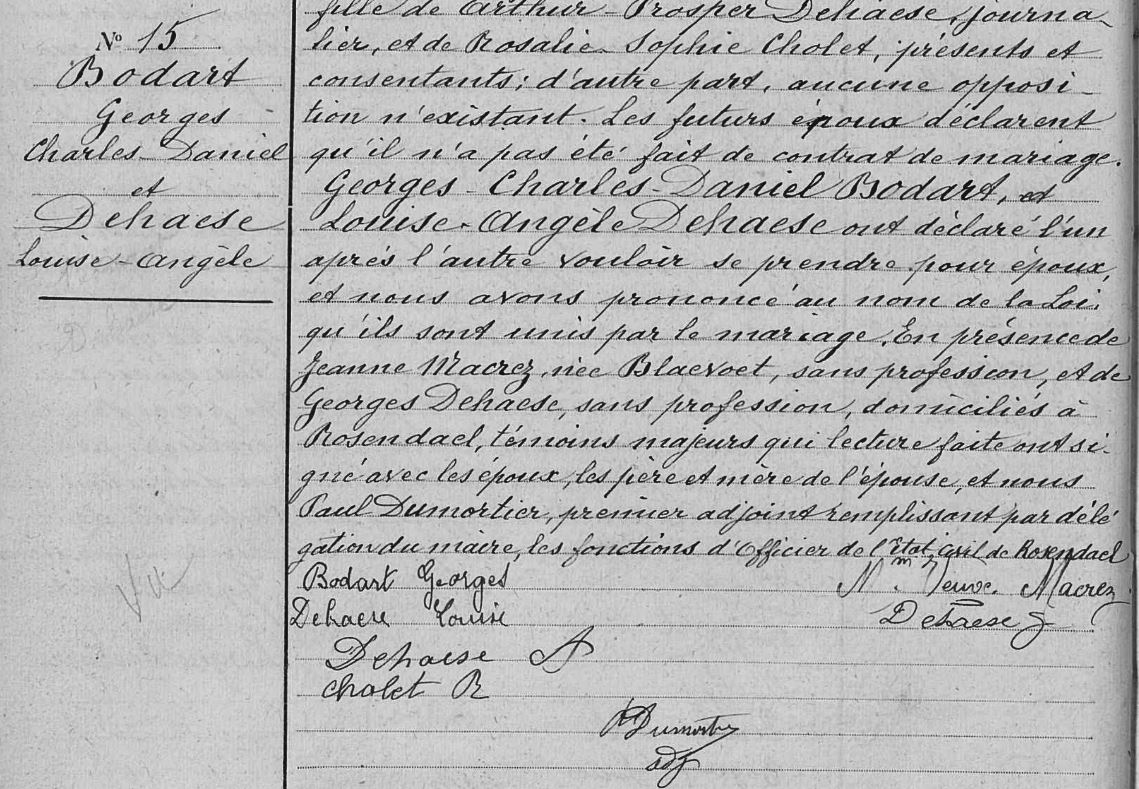 N° 15
Bodart
Georges
Charles-Daniel
et
Dehaese
Louise-Angèle
Vu
fille de Arthur-Prosper Dehaese, journa-
lier, et de Rosalie-Sophie Cholet, présents et
consentants; d'autre part, aucune opposi-
tion n'existant. Les futurs époux déclarent
qu'il n'a pas été fait de contrat de mariage.
Georges-Charles-Daniel Bodart, et
Louise-Angèle Dehaese ont déclaré l'un
après l'autre vouloir se prendre pour époux,
et nous avons prononcé au nom de la Loi,
qu'ils sont unis par le mariage. En présence de
Jeanne Macrez, née Blaevoet, sans profession, et de
Georges Dehaese, sans profession, domiciliés à
Rosendael, témoins majeurs qui lecture faite ont si-
gné avec les époux, les père et mère de l'épouse, et nous
Paul Dumortier, premier adjoint remplissant par délé
gation du maire, les fonctions d'Officier de l'Etat civil de Rosendael
Bodart Georges
Mme Veuve Macrez
Dehaese Louise
Dehaese G
Dehaese A
Cholet R
PDumortier
adj